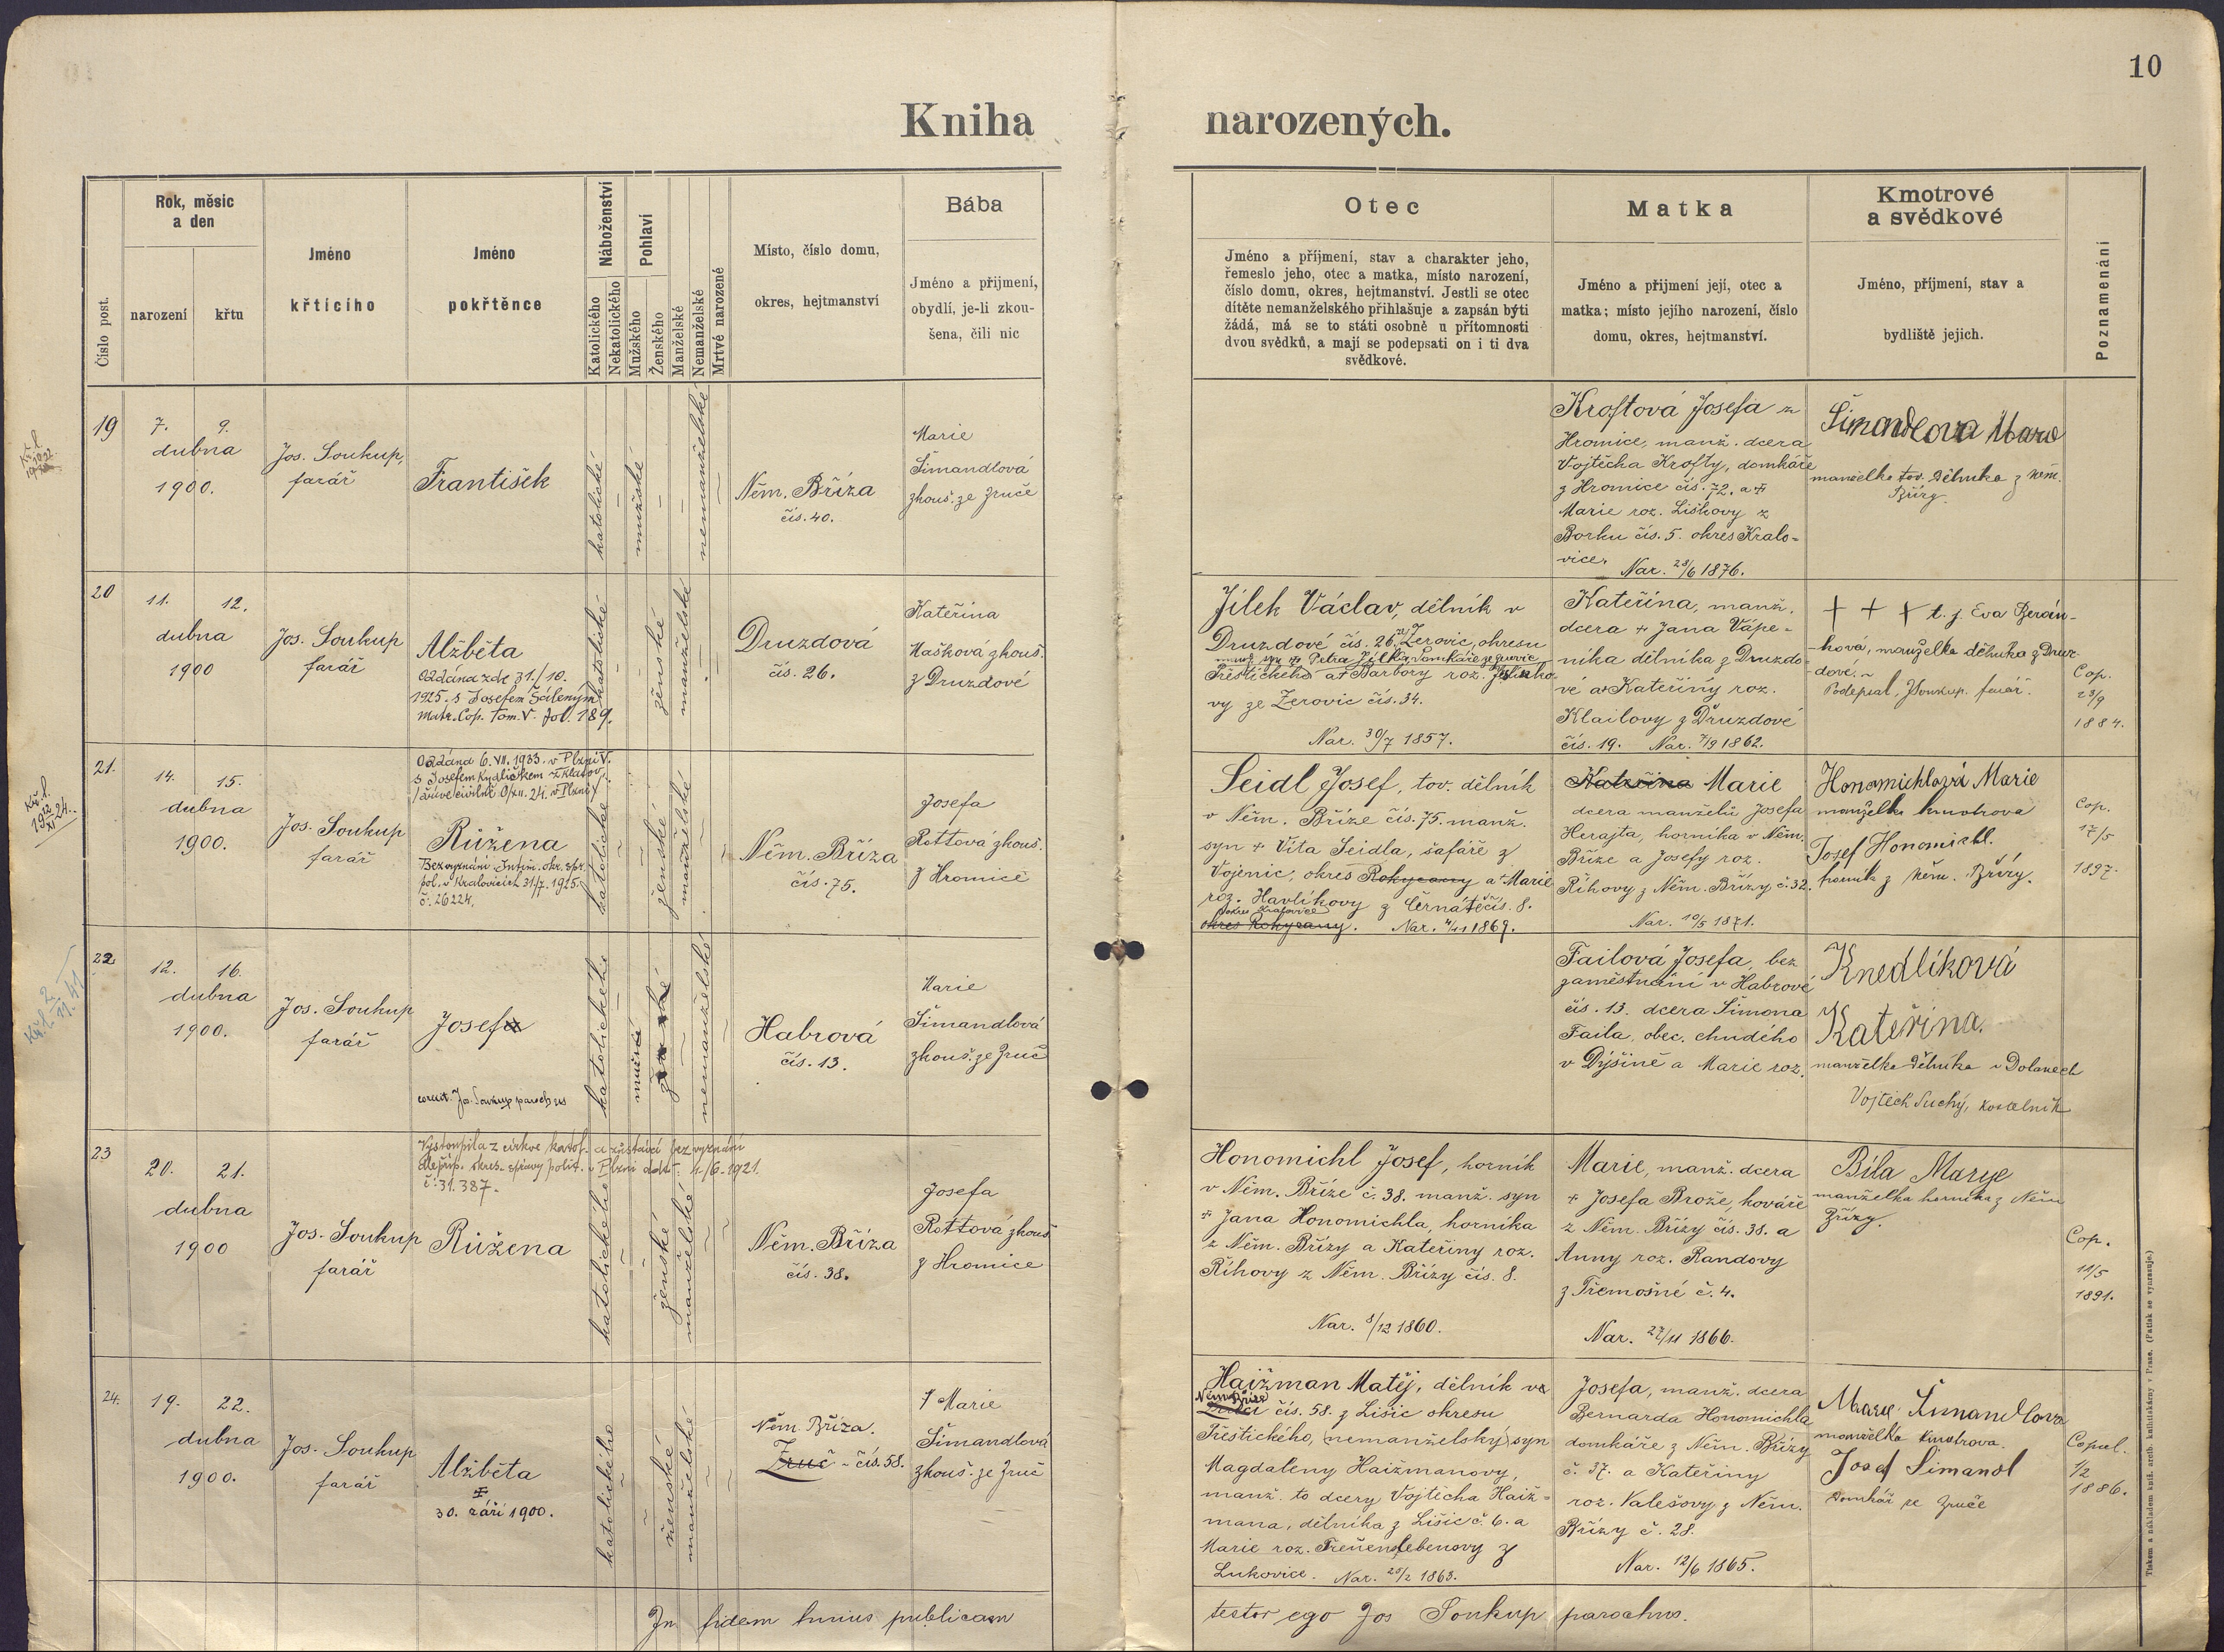 10
Kniha narozených.
Číslo post.
Rok, měsíc
a den
narození
křtu
Jméno
křtícího
Jméno
pokřtěnce
Náboženství
Katolického
Nekatolického
Pohlaví
Mužského
Ženského
Manželské
Nemanželské
Mrtvě narozené
Místo, číslo domu,
okres, hejtmanství
Bába
Jméno a přijmení,
obydlí, je-li zkou-
šena, čili nic
Otec
Jméno a příjmení, stav a charakter jeho,
řemeslo jeho, otec a matka, místo narození,
číslo domu, okres, hejtmanství. Jestli se otec
dítěte nemanželského přihlašuje a zapsán býti
žádá, má se to státi osobně u přítomnosti
dvou svědků, a mají se podepsati on i ti dva
svědkové.
Matka
Jméno a přijmení její, otec a
matka; místo jejího narození, číslo
domu, okres, hejtmanství.
Kmotrové
a svědkové
Jméno, příjmení, stav a
bydliště jejich.
Poznamenání
19
7. 9.
dubna
1900.
Jos. Soukup,
farář
František
katolické
mužské
nemanželské
Něm. Bříza
čís. 40.
Marie
Šimandlová
zkouš. ze Zruče
Kroftová Josefa z
Hromice, manž. dcera
Vojtěcha Krofty, domkáře
z Hromice čís. 72. a +
Marie roz. Liškovy z
Borku čís. 5. okres Kralo-
vice.
Nar. 28/6 1876.
Šimandlova Marie
manželka tov. dělníka z Něm.
Břízy.
20
11. 12.
dubna
1900
Jos. Soukup
farář
Alžběta
Oddána zde 31./10.
1925. s Josefem Šíleným
Matr. Cop. Tom. V. fol. 189.
katolické
ženské
manželské
Druzdová
čís. 26.
Kateřina
Hašková zkouš.
z Druzdové
Jílek Václav, dělník v
Druzdové čís. 26, z Žerovic, okresu
manž. syn + Petra Jílka, domkáře ze Žerovic
Přeštického a + Barbory roz.
vy ze Žerovic čís. 34.
Nar. 30/7 1857.
Kateřina, manž.
dcera + Jana Vápe-
níka dělníka z Druzdo-
vé a + Kateřiny roz.
Klailovy z Druzdové
čís. 19. Nar. 7/9 1862.
+ + + t. j. Eva Beran-
ková, manželka dělníka z Druz-
dové.
Podepsal, JSoukup. farář.
Cop.
23/9
1884.
21.
14. 15.
dubna
1900.
Jos. Soukup
farář
Oddána 6. VII. 1933. v Plzni V.
s Josefem Kydlíčkem z Klatov
/dříve civilně 0/XII. 24. v Plzni/
Růžena
Bez vyznání. Intim. okr. spr.
pol. v Kralovicích 31/7. 1925.
č. 26224.
katolické
ženské
manželské
Něm. Bříza
čís. 75.
Josefa
Rottová zkouš.
z Hromice
Seidl Josef, tov. dělník
v Něm. Bříze čís. 75. manž.
syn + Víta Seidla, šafáře z
Vojenic, okres Rokycany a + Marie
roz. Havlíkovy z Černátě čís. 8.
okres Kralovice
okres Rokycany. Nar. 4/11 1869.
Kateřina Marie
dcera manželů Josefa
Herajta, horníka v Něm.
Bříze a Josefy roz.
Říhovy z Něm. Břízy č. 32.
Nar. 10/5 1871.
Honomichlová Marie
manželka kmotrova
Josef Honomichl.
horník z Něm. Břízy.
Cop.
17/5
1897.
22
12. 16.
dubna
1900.
Jos. Soukup
farář
Josefa
correxit. Jos. Soukup parochus
katolického
mužské
ženské
nemanželské
Habrová
čís. 13.
Marie
Šimandlová
zkouš. ze Zruč
Failová Josefa, bez
zaměstnání v Habrové
čís. 13. dcera Šimona
Faila, obec. chudého
v Dýšině a Marie roz.
Knedlíková
Kateřina.
manželka dělníka v Dolanech
Vojtěch Suchý, kostelník
23
20. 21.
dubna
1900
Jos. Soukup
farář
Vystoupila z církve katol. a zůstává bez vyznání
dle příp. okres. správy polit. v Plzni ddt. 4./6. 1921.
č. 31.387.
Růžena
katolického
ženské
manželské
Něm. Bříza
čís. 38.
Josefa
Rottová zkouš
z Hromice
Honomichl Josef, horník
v Něm. Bříze č. 38. manž. syn
+ Jana Honomichla, horníka
z Něm. Břízy a Kateřiny roz.
Říhovy z Něm. Břízy čís. 8.
Nar. 8/12 1860.
Marie, manž. dcera
+ Josefa Brože, kováře
z Něm. Břízy čís. 38. a
Anny roz. Randovy
z Třemošné č. 4.
Nar. 27/11 1866.
Bíla Marye
manželka horníka z Něm
Břízy.
Cop.
11/5
1891.
24.
19. 22.
dubna
1900.
Jos. Soukup
farář
Alžběta
+
30. září 1900.
katolického
ženské
manželské
Něm. Bříza.
Zruč - čís. 58.
Marie
Šimandlová
zkouš. ze Zruč
Haižman Matěj, dělník ve
Něm. Bříze
Zruči čís. 58. z Lišic okresu
Přeštického, nemanželský syn
Magdaleny Haižmanovy,
manž. to dcery Vojtěcha Haiž-
mana, dělníka z Lišic č. 6. a
Marie roz. Treuenslebenovy z
Lukovice. Nar. 25/2 1863.
Josefa, manž. dcera
Bernarda Honomichla
domkáře z Něm. Břízy
č. 37. a Kateřiny
roz. Valešovy z Něm.
Břízy č. 28.
Nar. 12/6 1865.
Marie Šimandlova
manželka kmotrova.
Josef Šimandl
domkář ze Zruče
Copul.
1/2
1886.
In fidem huius publicam testor ego Jos Soukup parochus.
Tiskem a nákladem kníž. arcib. knihtiskárny v Praze. (Patisk se vyhrazuje.)